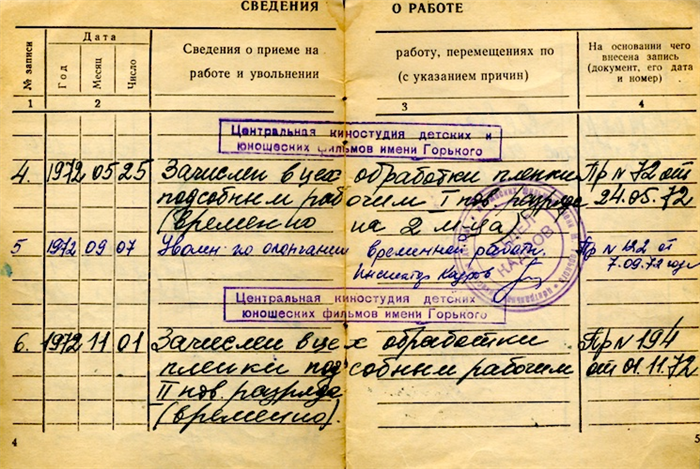 СВЕДЕНИЯ О РАБОТЕ
№ записи
Дата
Год
Месяц
Число
Сведения о приеме на работу, перемещениях по
работе и увольнении (с указанием причин)
На основании чего
внесена запись
(документ, его дата
и номер)
1 2 3 4
Центральная киностудия детских и
юношеских фильмов имени Горького
4. 1972 05 25 Зачислен в цех обработки пленки Пр N 72 от
подсобным рабочим I пов. разряда 24.05.72
(временно на 2 м-ца)
5 1972 09 07 Уволен по окончании временной работы. Пр N 122 от
Инспектор кадров 7.09.72 года
ОТДЕЛ КАДРОВ
Центральная киностудия детских
юношеских фильмов имени Горького
6. 1972 11 01 Зачислен в цех обработки Пр N 194
пленки подсобным рабочим от 01.11.72
II пов. разряда
(временно).
4 5